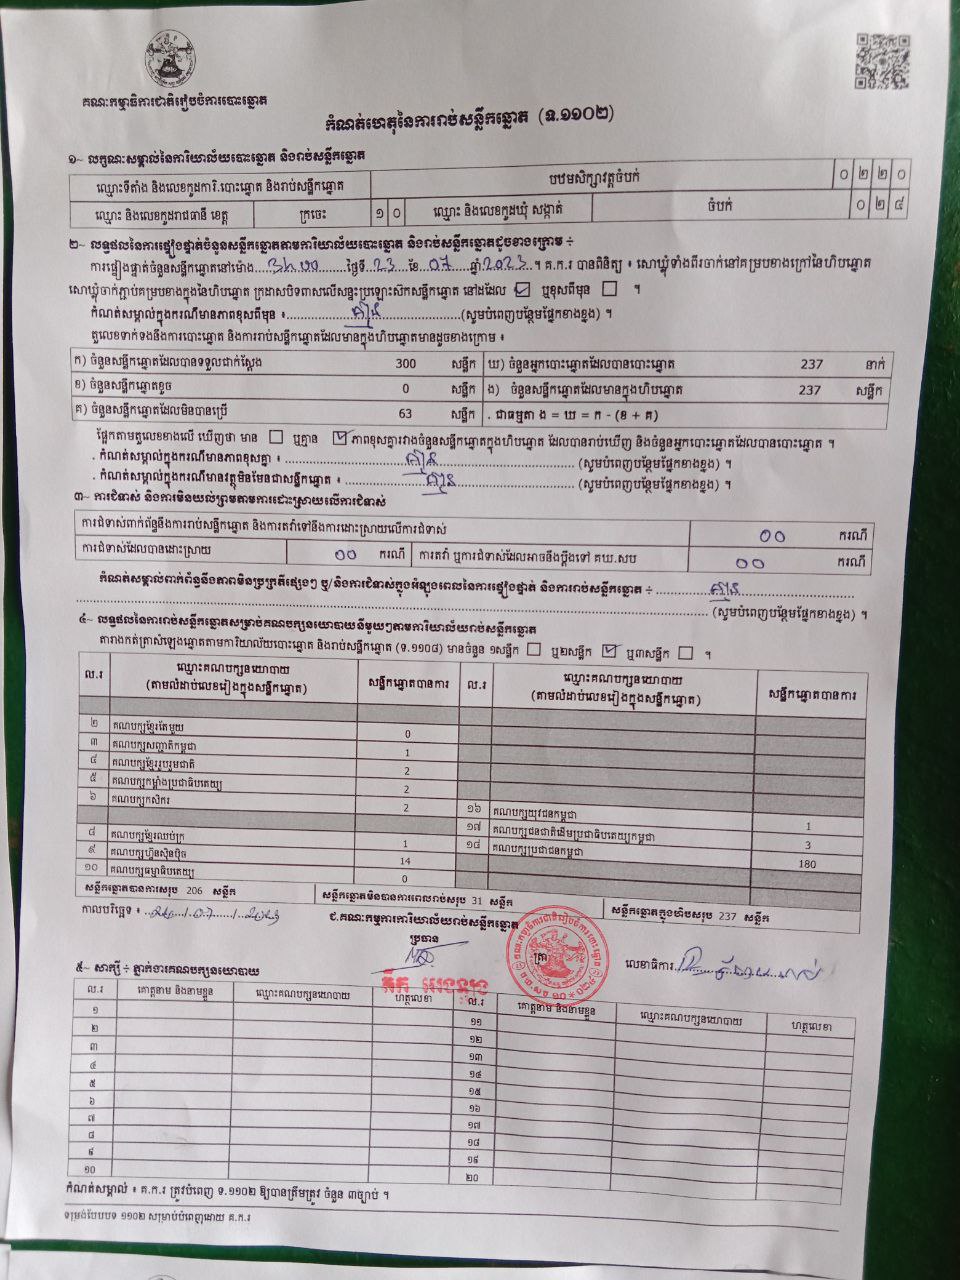 គណៈកម្មាធិការជាតិរៀបចំការបោះឆ្នោត
កំណត់ហេតុនៃការរាប់សន្លឹកឆ្នោត (ទ.១១០២)
១~ លក្ខណៈសម្គាល់នៃការិយាល័យបោះឆ្នោត និងរាប់សន្លឹកឆ្នោត
ឈ្មោះទីតាំង និងលេខកូដការិ.បោះឆ្នោត និងរាប់សន្លឹកឆ្នោត បឋមសិក្សាវត្តចំបក់ ០ ២ ២ ០
ឈ្មោះ និងលេខកូដរាជធានី ខេត្ត ក្រចេះ ១ ០ ឈ្មោះ និងលេខកូដឃុំ សង្កាត់ ចំបក់ ០ ២ ៨
២~ លទ្ធផលនៃការផ្ទៀងផ្ទាត់ចំនួនសន្លឹកឆ្នោតតាមការិយាល័យបោះឆ្នោត និងរាប់សន្លឹកឆ្នោតដូចខាងក្រោម ÷
ការផ្ទៀងផ្ទាត់ចំនួនសន្លឹកឆ្នោតនៅម៉ោង ថ្ងៃទី 23 ខែ 07 ឆ្នាំ 2023 ។ គ.ក.រ បានពិនិត្យ ៖ សោឃ្លុំទាំងពីរចាក់នៅគម្របខាងក្រៅនៃហិបឆ្នោត
សោឃ្លុំចាក់ភ្ជាប់គម្របខាងក្នុងនៃហិបឆ្នោត ក្រដាសបិទពាសលើសន្ទះប្រឡោះស៊កសន្លឹកឆ្នោត នៅដដែល ឬខុសពីមុន ។
កំណត់សម្គាល់ក្នុងករណីមានភាពខុសពីមុន ៖ គ្មាន (សូមបំពេញបន្ថែមផ្នែកខាងខ្នង) ។
តួលេខទាក់ទងនឹងការបោះឆ្នោត និងការរាប់សន្លឹកឆ្នោតដែលមានក្នុងហិបឆ្នោតមានដូចខាងក្រោម ៖
ក) ចំនួនសន្លឹកឆ្នោតដែលបានទទួលជាក់ស្ដែង 300 សន្លឹក ឃ) ចំនួនអ្នកបោះឆ្នោតដែលបានបោះឆ្នោត 237 នាក់
ខ) ចំនួនសន្លឹកឆ្នោតខូច 0 សន្លឹក ង) ចំនួនសន្លឹកឆ្នោតដែលមានក្នុងហិបឆ្នោត 237 សន្លឹក
គ) ចំនួនសន្លឹកឆ្នោតដែលមិនបានប្រើ 63 សន្លឹក . ជាធម្មតា ង = ឃ = ក - (ខ + គ)
ផ្អែកតាមតួលេខខាងលើ ឃើញថា មាន ឬគ្មាន ភាពខុសគ្នារវាងចំនួនសន្លឹកឆ្នោតក្នុងហិបឆ្នោត ដែលបានរាប់ឃើញ និងចំនួនអ្នកបោះឆ្នោតដែលបានបោះឆ្នោត ។
. កំណត់សម្គាល់ក្នុងករណីមានភាពខុសគ្នា ៖ គ្មាន (សូមបំពេញបន្ថែមផ្នែកខាងខ្នង) ។
. កំណត់សម្គាល់ក្នុងករណីមានវត្ថុមិនមែនជាសន្លឹកឆ្នោត ៖ គ្មាន (សូមបំពេញបន្ថែមផ្នែកខាងខ្នង) ។
៣~ ការជំទាស់ និងការមិនយល់ព្រមតាមការដោះស្រាយលើការជំទាស់
ការជំទាស់ពាក់ព័ន្ធនឹងការរាប់សន្លឹកឆ្នោត និងការតវ៉ាទៅនឹងការដោះស្រាយលើការជំទាស់ 00 ករណី
ការជំទាស់ដែលបានដោះស្រាយ 00 ករណី ការតវ៉ា ឬការជំទាស់ដែលអាចនឹងប្ដឹងទៅ គឃ.សប 00 ករណី
កំណត់សម្គាល់ពាក់ព័ន្ធនឹងភាពមិនប្រក្រតីផ្សេងៗ ឬ/និងការជំទាស់ក្នុងអំឡុងពេលនៃការផ្ទៀងផ្ទាត់ និងការរាប់សន្លឹកឆ្នោត ÷ គ្មាន
(សូមបំពេញបន្ថែមផ្នែកខាងខ្នង) ។
៤~ លទ្ធផលនៃការរាប់សន្លឹកឆ្នោតសម្រាប់គណបក្សនយោបាយនីមួយៗតាមការិយាល័យរាប់សន្លឹកឆ្នោត
តារាងកត់ត្រាសំឡេងឆ្នោតតាមការិយាល័យបោះឆ្នោត និងរាប់សន្លឹកឆ្នោត (ទ.១១០៨) មានចំនួន ១សន្លឹក ឬ២សន្លឹក ឬ៣សន្លឹក ។
ល.រ ឈ្មោះគណបក្សនយោបាយ (តាមលំដាប់លេខរៀងក្នុងសន្លឹកឆ្នោត) សន្លឹកឆ្នោតបានការ ល.រ ឈ្មោះគណបក្សនយោបាយ (តាមលំដាប់លេខរៀងក្នុងសន្លឹកឆ្នោត) សន្លឹកឆ្នោតបានការ
២ គណបក្សខ្មែរតែមួយ 0
៣ គណបក្សសញ្ជាតិកម្ពុជា 1
៤ គណបក្សខ្មែររួបរួមជាតិ 2
៥ គណបក្សកម្លាំងប្រជាធិបតេយ្យ 2
៦ គណបក្សកសិករ 2 ១៦ គណបក្សយុវជនកម្ពុជា 1
១៧ គណបក្សជនជាតិដើមប្រជាធិបតេយ្យកម្ពុជា 3
៨ គណបក្សខ្មែរឈប់ក្រ 1 ១៨ គណបក្សប្រជាជនកម្ពុជា 180
៩ គណបក្សហ្វ៊ុនស៊ិនប៉ិច 14
១០ គណបក្សធម្មាធិបតេយ្យ 0
សន្លឹកឆ្នោតបានការសរុប 206 សន្លឹក សន្លឹកឆ្នោតមិនបានការពេលរាប់សរុប 31 សន្លឹក សន្លឹកឆ្នោតក្នុងហិបសរុប 237 សន្លឹក
កាលបរិច្ឆេទ ៖ /07/2023 ជ.គណៈកម្មការការិយាល័យរាប់សន្លឹកឆ្នោត
ប្រធាន ត្រា លេខាធិការ
៥~ សាក្សី ÷ ភ្នាក់ងារគណបក្សនយោបាយ
ល.រ គោត្តនាម និងនាមខ្លួន ឈ្មោះគណបក្សនយោបាយ ហត្ថលេខា ល.រ គោត្តនាម និងនាមខ្លួន ឈ្មោះគណបក្សនយោបាយ ហត្ថលេខា
១ ១១
២ ១២
៣ ១៣
៤ ១៤
៥ ១៥
៦ ១៦
៧ ១៧
៨ ១៨
៩ ១៩
១០ ២០
កំណត់សម្គាល់ ៖ គ.ក.រ ត្រូវបំពេញ ទ.១១០២ ឱ្យបានត្រឹមត្រូវ ចំនួន ៣ច្បាប់ ។
ទម្រង់បែបបទ ១១០២ សម្រាប់បំពេញដោយ គ.ក.រ